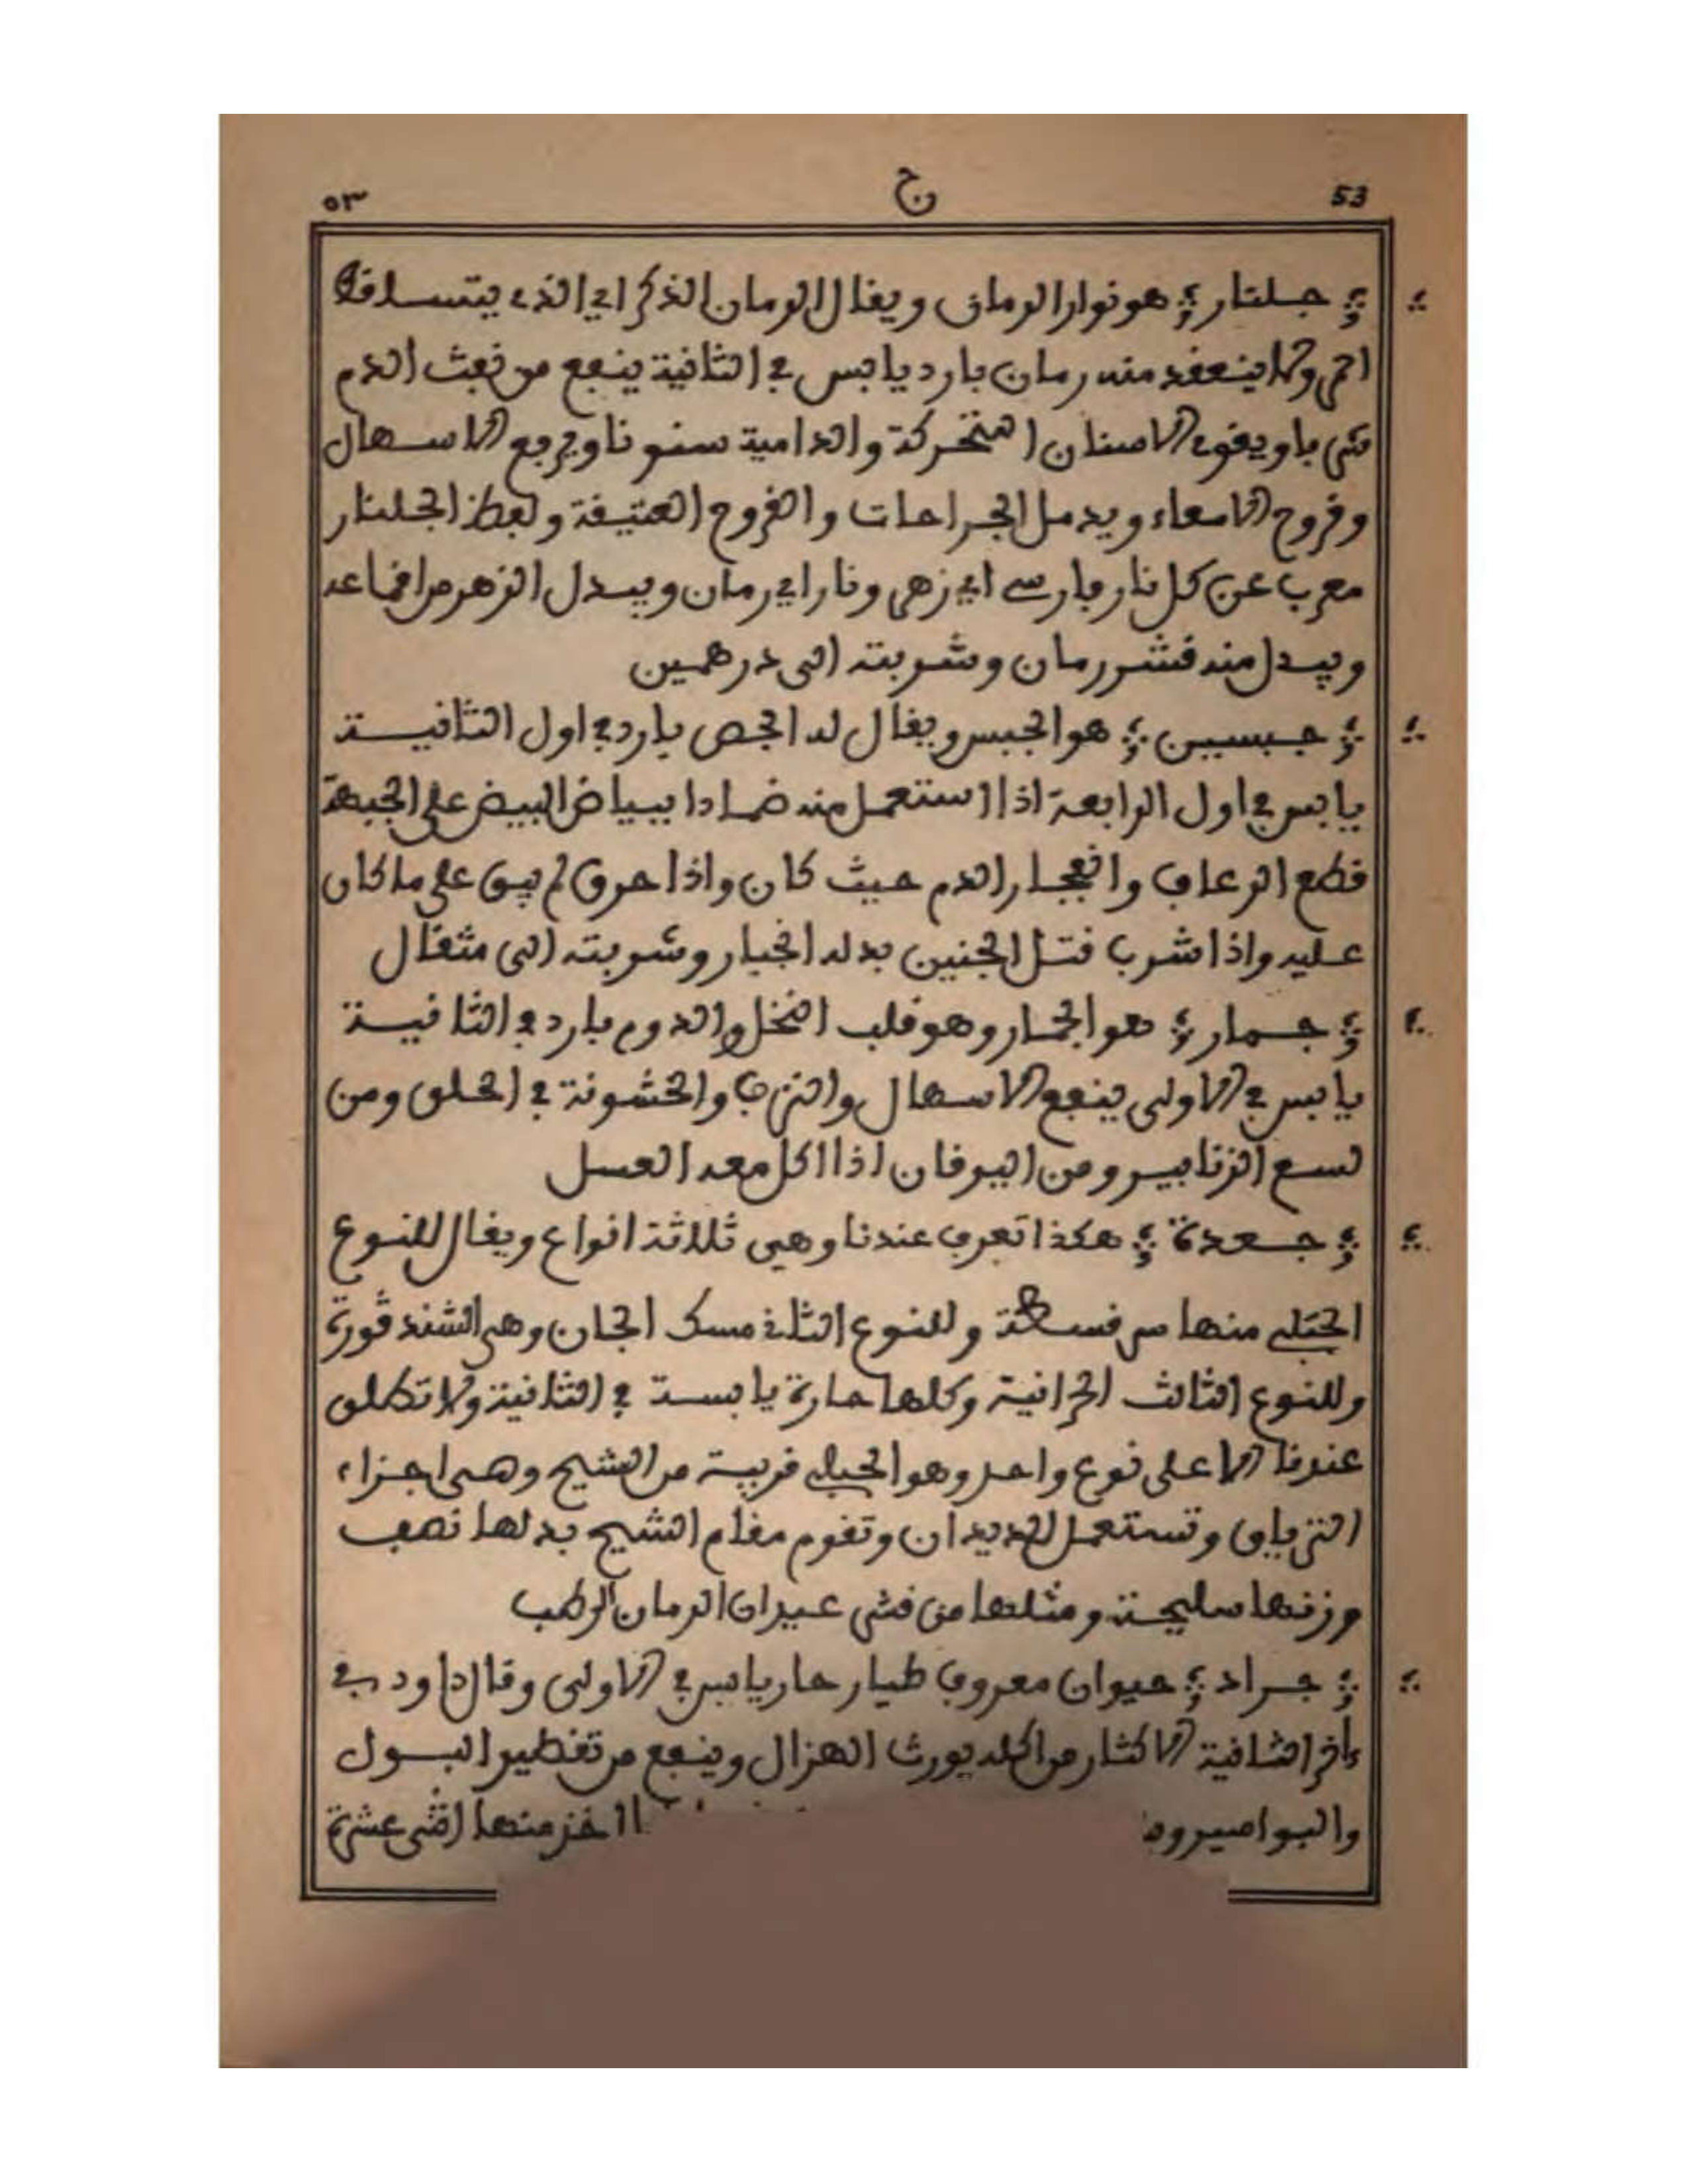 53 ج ٥٣
جلنار هو نوار الرمان ويقال الرمان الذكر اي الذي يتساقط
احمر ولا ينعقد منه رمان بارد يابس في الثانية ينفع من نفث الدم
شربا ويقوي الاسنان المتحركة والدامية سنونا ويرفع الاسهال
وقروح الامعاء ويدمل الجراحات والقروح العتيقة ولفظ الجلنار
معرب عن كل نار فارسي اي زهر ونار اي رمان ويبدل الزهر من اقماعه
ويبدل منه قشر رمان وشربته الى درهمين
جبسين هو الجبس ويقال له الجص بارد في اول الثانية
يابس في اول الرابعة اذا استعمل منه ضمادا ببياض البيض على الجبهة
قطع الرعاف وانفجار الدم حيث كان واذا حرق لم يبق على ما كان
عليه واذا شرب قتل الجنين بدله انجبار وشربته الى مثقال
جمار هو الجمار وهو قلب النخل والدوم بارد في الثانية
يابس في الاولى ينفع الاسهال والنزف والخشونة في الحلق ومن
لسع الزنابير ومن اليرقان اذا اكل معه العسل
جعدة هكذا تعرف عندنا وهي ثلاثة انواع ويقال للنوع
الجبلي منها وللنوع الثاني مسك الجان وهي الشندڨورة
وللنوع الثالث الحرانية وكلها حارة يابسة في الثانية ولا تطلق
عندنا الا على نوع واحد وهو الجبلي قريبة من الشيح وهي اجزاء
الترياق وتستعمل للديدان وتقوم مقام الشيح بدلها نصف
وزنها سليخة ومثلها من قشر عيدان الرمان الرطب
جراد حيوان معروف طيار حار يابس في الاولى وقال داود في
ءاخر الثانية الاكثار من اكله يورث الهزال وينفع من تقطير البول
والبواسير اخذ منها اثنى عشرة